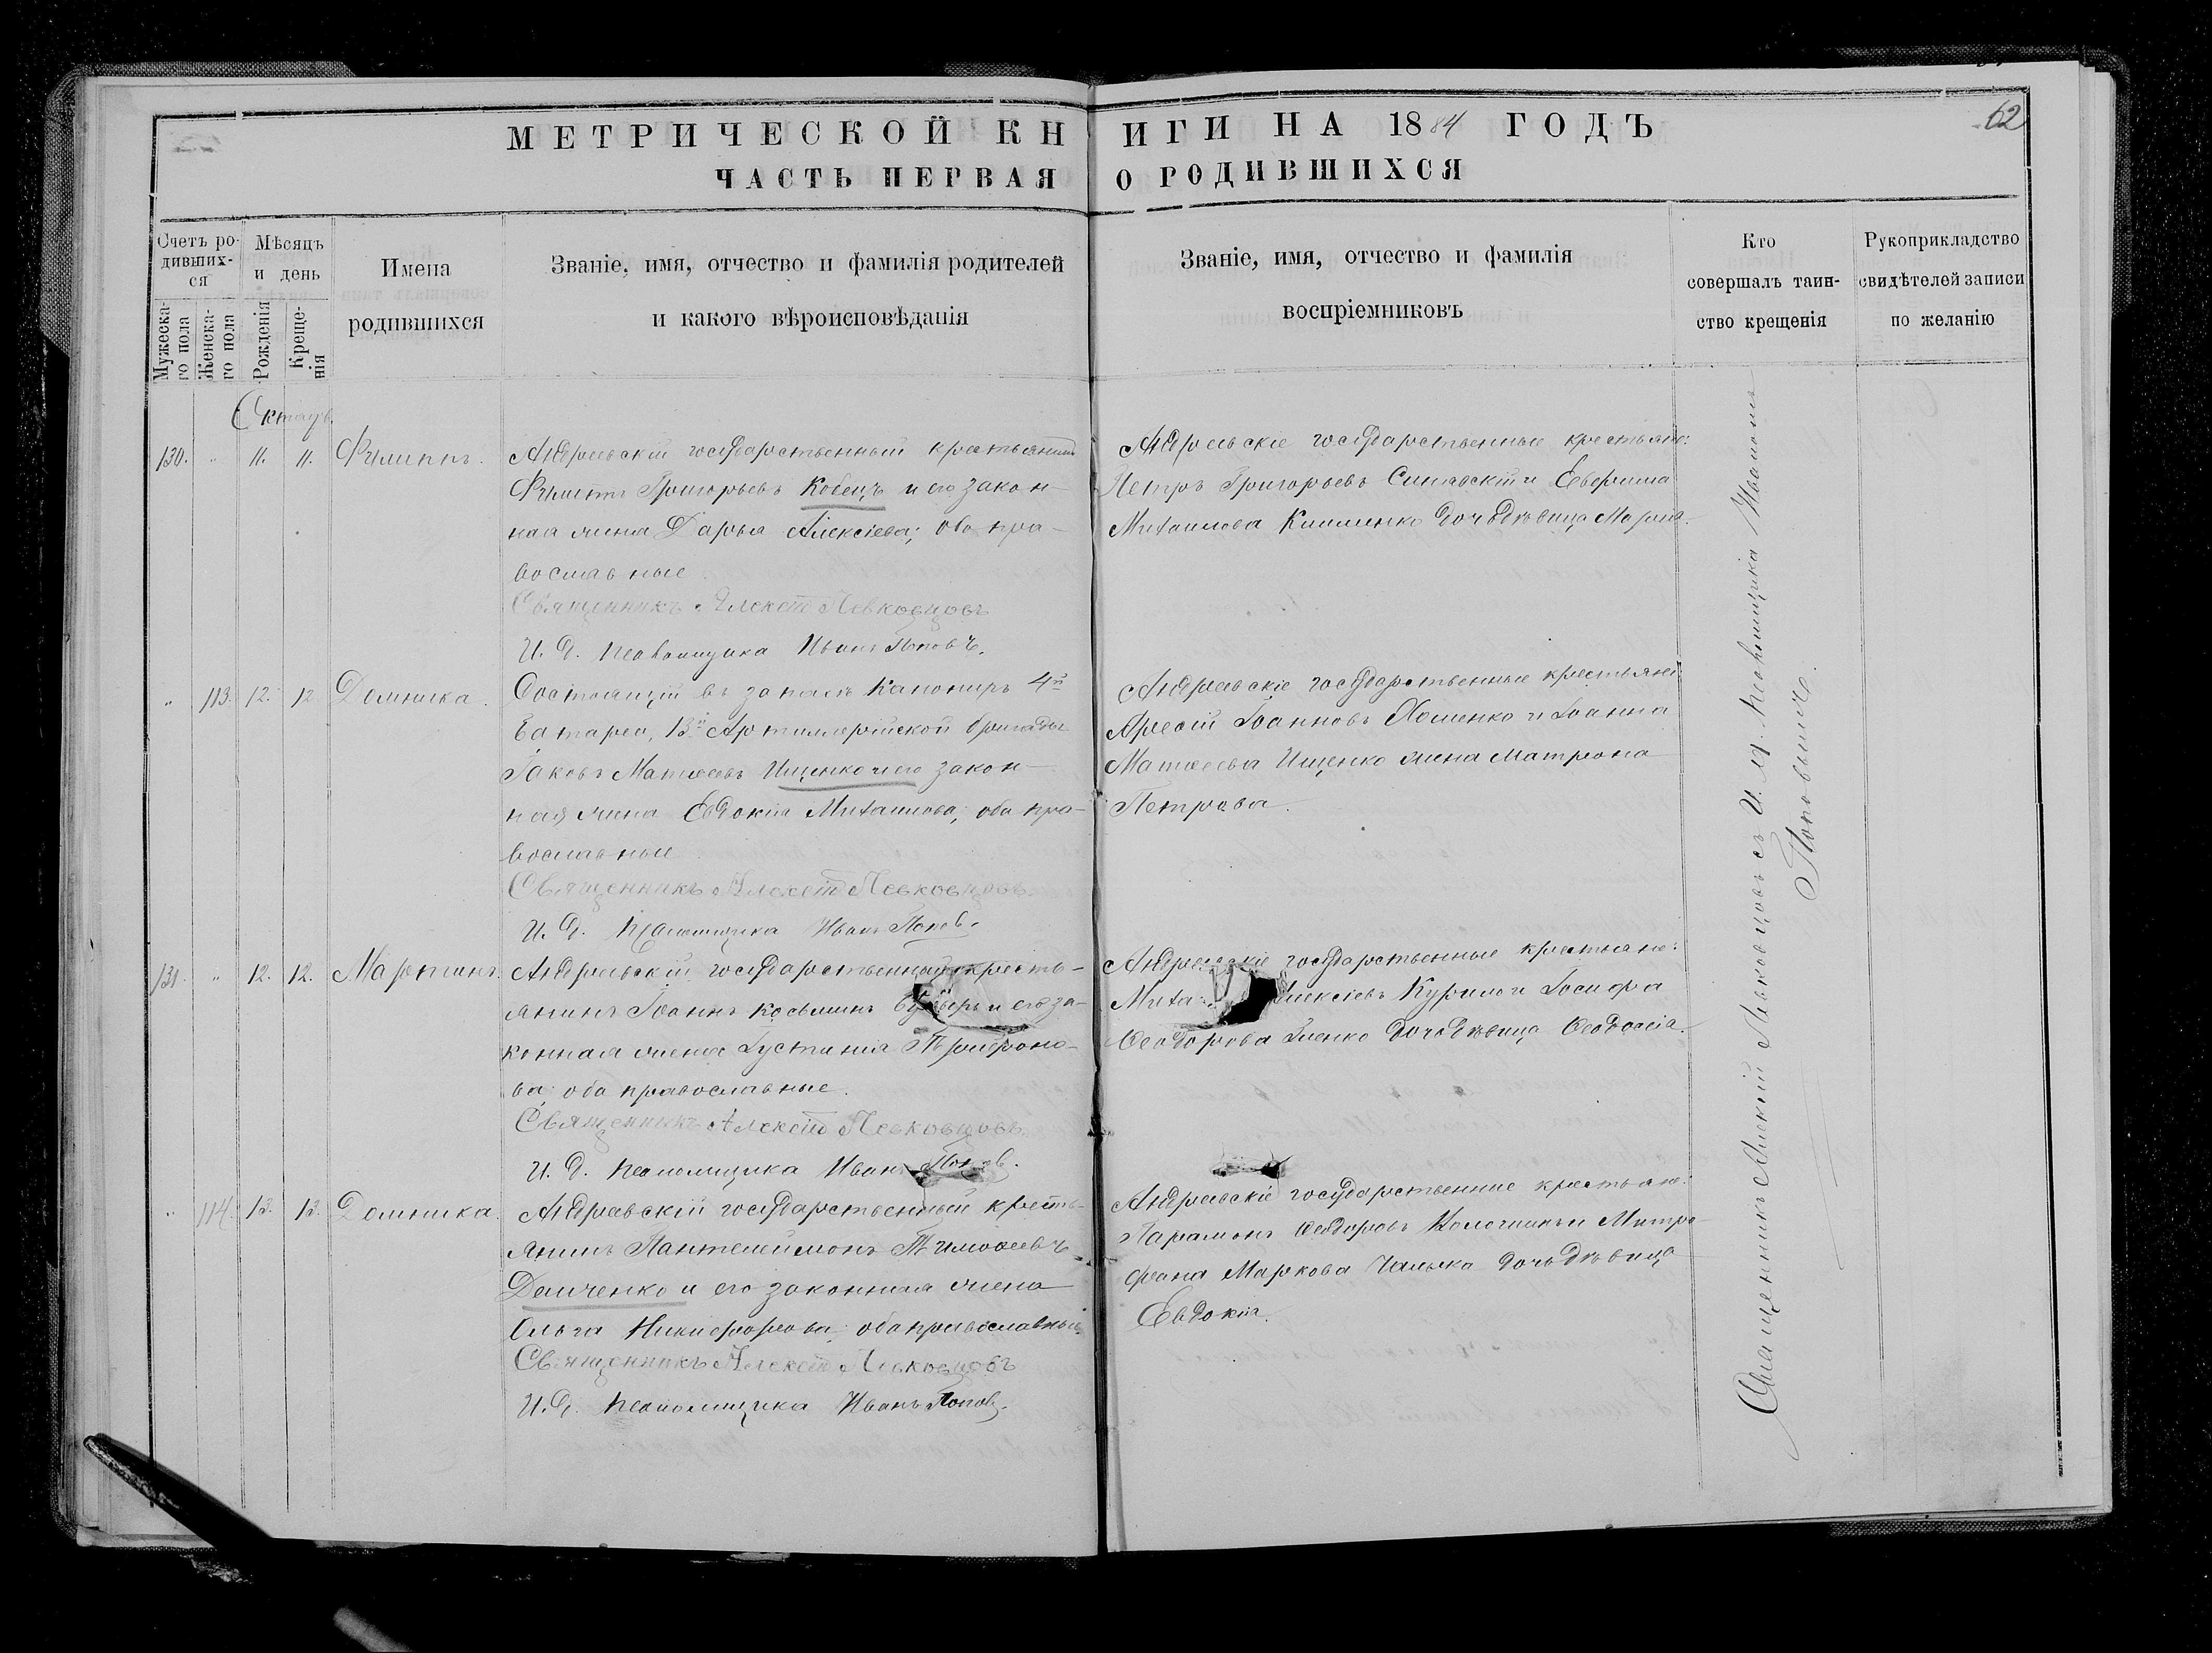 62
МЕТРИЧЕСКОЙ КНИГИ НА 1884 ГОДЪ
ЧАСТЬ ПЕРВАЯ О РОДИВШИХСЯ
Счетъ ро-
дивших-
ся
Мужеска-
го пола
Женска-
го пола
Мѣсяцъ
и день
Рожденія
Креще-
нія
Имена
родившихся
Званіе, имя, отчество и фамилія родителей
и какого вѣроисповѣданія
Званіе, имя, отчество и фамилія
воспріемниковъ
Кто
совершалъ таин-
ство крещенія
Рукоприкладство
свидѣтелей записи
по желанію
130. " 11. 11. Филиппъ.
Андреевскій государственный крестьянинъ
Филиппъ Григорьевъ Кобецъ и его закон-
ная жена Дарья Алексіева; оба пра-
вославные
Священникъ Алексій Левковцовъ
И. д. псаломщика Иванъ Поповъ.
Андреевскіе государственные крестьяне:
Петръ Григорьевъ и Евфимія
Михаилова Клименко дочь дѣвица Марія.
" 113. 12. 12 Домника.
Состоящій въ запасѣ Канониръ 4й
Батареи, 13й Артиллерійской бригады
Іаковъ Матѳеевъ Ищенко и его закон-
ная жена Евдокія Михаилова; оба пра-
вославные
Священникъ Алексій Левковцовъ.
И. д. псаломщика Иванъ Поповъ.
Андреевскіе государственные крестьяне:
Іоанновъ Хоменко и Іоанна
Матѳеева Ищенко жена Матрона
Петрова.
131. " 12. 12. Мартинъ.
Андреевскій государственный кресть-
янинъ Іоаннъ Косьминъ и его за-
конная жена Іустинія Трифоно-
ва; оба православные.
Священникъ Алексій Левковцовъ
И. д. псаломщика Иванъ Поповъ.
Андреевскіе государственные крестьяне:
Алексіевъ Курило и Іосифа
Ѳеодорова дочь дѣвица Ѳеодосія.
" 114. 13. 13. Домника.
Андреевскій государственный кресть-
янинъ Пантелеимонъ Тимоѳеевъ
Демченко и его законная жена
Ольга Никифорова; оба православные.
Священникъ Алексій Левковцовъ
И. д. псаломщика Иванъ Поповъ.
Андреевскіе государственные крестьяне:
Парамонъ Ѳеодоровъ и Митро-
фана Маркова дочь дѣвица
Евдокія.
Священникъ Алексій Левковцовъ съ И. д. псаломщика Иваномъ
Поповымъ.